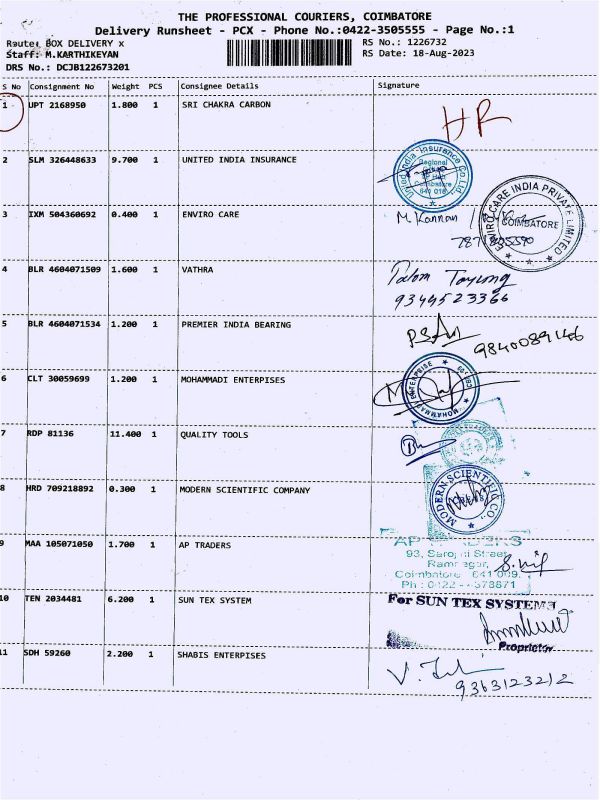 THE PROFESSIONAL COURIERS, COIMBATORE
Delivery Runsheet - PCX - Phone No.:0422-3505555 - Page No.:1
Route: BOX DELIVERY x RS No.: 1226732
Staff: M.KARTHIKEYAN RS Date: 18-Aug-2023
DRS No.: DCJB122673201
S No Consignment No Weight PCS Consignee Details Signature
1 UPT 2168950 1.800 1 SRI CHAKRA CARBON
HR
2 SLM 326448633 9.700 1 UNITED INDIA INSURANCE
United India Insurance Co Ltd
Regional
Coimbatore
641 018
3 IXM 504360692 0.400 1 ENVIRO CARE
M Kannan
ENVIRO CARE INDIA PRIVATE LIMITED
COIMBATORE
4 BLR 4604071509 1.600 1 VATHRA
9344523366
5 BLR 4604071534 1.200 1 PREMIER INDIA BEARING
9840089146
6 CLT 30059699 1.200 1 MOHAMMADI ENTERPISES
7 RDP 81136 11.400 1 QUALITY TOOLS
8 HRD 709218892 0.300 1 MODERN SCIENTIFIC COMPANY
MODERN SCIENTIFIC CO.
9 MAA 105071050 1.700 1 AP TRADERS
AP
93, Street
Coimbatore 641 009.
10 TEN 2034481 6.200 1 SUN TEX SYSTEM
For SUN TEX SYSTEMS
Proprietor
11 SDH 59260 2.200 1 SHABIS ENTERPISES
9363123212